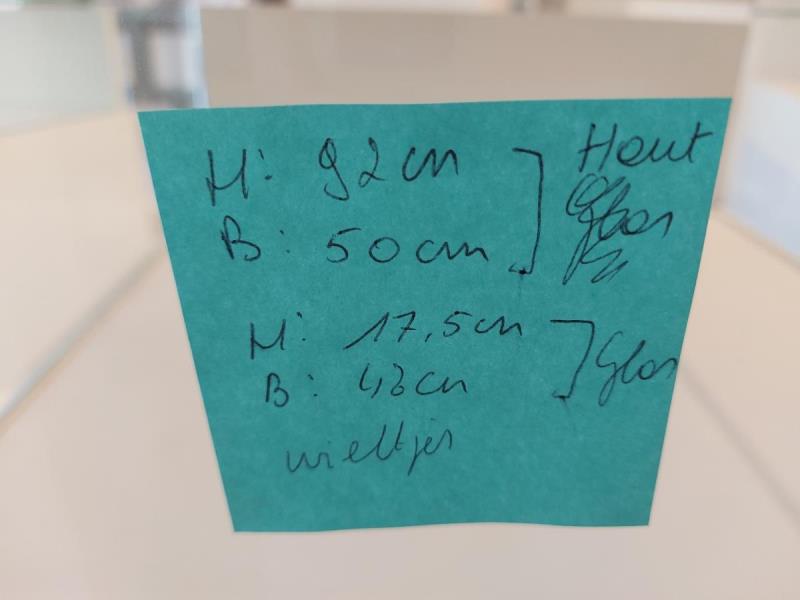 H: 92 cm
B: 50 cm
Hout
H: 17,5 cm
B: 43 cm
Glas
wieltjes